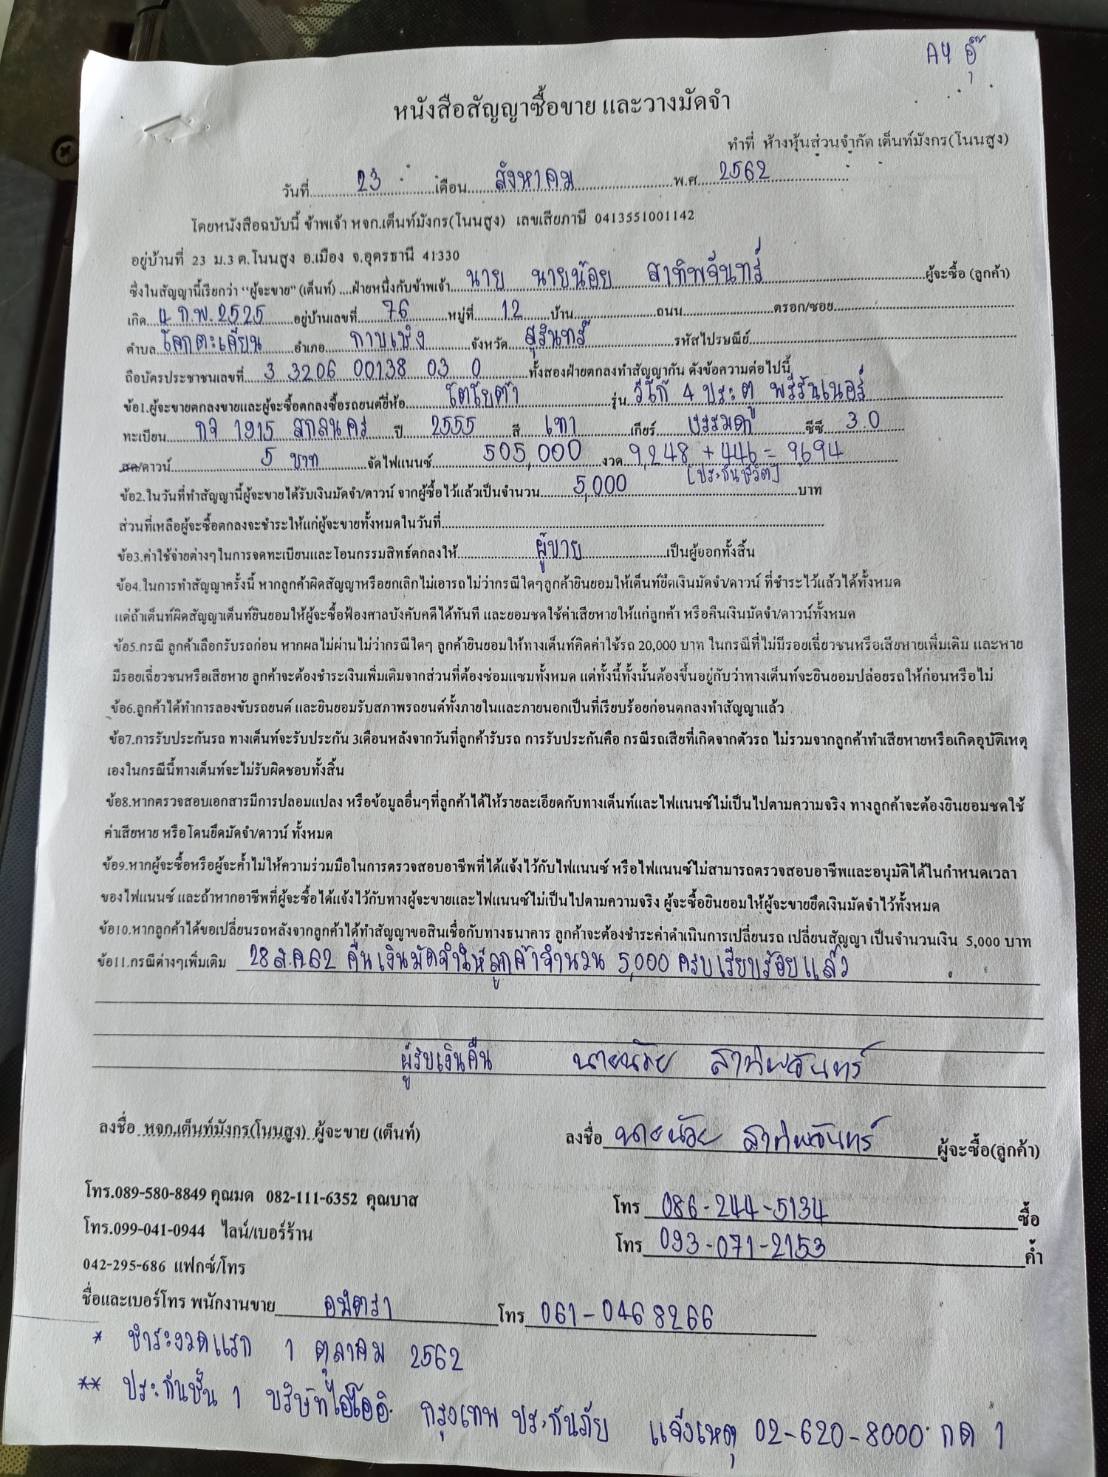 AY อุ๊
หนังสือสัญญาซื้อขาย และวางมัดจำ
ทำที่ ห้างหุ้นส่วนจำกัด เต็นท์มังกร(โนนสูง)
วันที่ 23 เดือน สิงหาคม พ.ศ. 2562
โดยหนังสือฉบับนี้ ข้าพเจ้า หจก.เต็นท์มังกร(โนนสูง) เลขเสียภาษี 0413551001142
อยู่บ้านที่ 23 ม.3 ต.โนนสูง อ.เมือง จ.อุดรธานี 41330
ซึ่งในสัญญานี้เรียกว่า "ผู้จะขาย" (เต็นท์) ....ฝ่ายหนึ่งกับข้าพเจ้า นาย นายน้อย สาทิพจันทร์ ผู้จะซื้อ (ลูกค้า)
เกิด 4 ก.พ. 2525 อยู่บ้านเลขที่ 76 หมู่ที่ 12 บ้าน ถนน ตรอก/ซอย
ตำบล โคกตะเคียน อำเภอ กาบเชิง จังหวัด สุรินทร์ รหัสไปรษณีย์
ถือบัตรประชาชนเลขที่ 3 3206 00138 03 0 ทั้งสองฝ่ายตกลงทำสัญญากัน ดังข้อความต่อไปนี้
ข้อ1.ผู้จะขายตกลงขายและผู้จะซื้อตกลงซื้อรถยนต์ยี่ห้อ โตโยต้า รุ่น วีโก้ 4 ประตู พรีรันเนอร์
ทะเบียน กจ 1915 สกลนคร ปี 2555 สี เทา เกียร์ ธรรมดา ซีซี 3.0
สด/ดาวน์ 5 บาท จัดไฟแนนซ์ 505,000 งวด 9,248 + 446 = 9694
[ประกันชีวิต]
ข้อ2.ในวันที่ทำสัญญานี้ผู้จะขายได้รับเงินมัดจำ/ดาวน์ จากผู้ซื้อไว้แล้วเป็นจำนวน 5,000 บาท
ส่วนที่เหลือผู้จะซื้อตกลงจะชำระให้แก่ผู้จะขายทั้งหมดในวันที่
ข้อ3.ค่าใช้จ่ายต่างๆในการจดทะเบียนและโอนกรรมสิทธ์ตกลงให้ ผู้ขาย เป็นผู้ออกทั้งสิ้น
ข้อ4.ในการทำสัญญาครั้งนี้ หากลูกค้าผิดสัญญาหรือยกเลิกไม่เอารถ ไม่ว่ากรณีใดๆลูกค้ายินยอมให้เต็นท์ยึดเงินมัดจำ/ดาวน์ ที่ชำระไว้แล้วได้ทั้งหมด
แต่ถ้าเต็นท์ผิดสัญญาเต็นท์ยินยอมให้ผู้จะซื้อฟ้องศาลบังคับคดีได้ทันที และยอมชดใช้ค่าเสียหายให้แก่ลูกค้า หรือคืนเงินมัดจำ/ดาวน์ทั้งหมด
ข้อ5.กรณี ลูกค้าเลือกรับรถก่อน หากผลไม่ผ่านไม่ว่ากรณีใดๆ ลูกค้ายินยอมให้ทางเต็นท์คิดค่าใช้รถ 20,000 บาท ในกรณีที่ไม่มีรอยเฉี่ยวชนหรือเสียหายเพิ่มเติม และหาย
มีรอยเฉี่ยวชนหรือเสียหาย ลูกค้าจะต้องชำระเงินเพิ่มเติมจากส่วนที่ต้องซ่อมแซมทั้งหมด แต่ทั้งนี้ทั้งนั้นต้องขึ้นอยู่กับว่าทางเต็นท์จะยินยอมปล่อยรถให้ก่อนหรือไม่
ข้อ6.ลูกค้าได้ทำการลองขับรถยนต์ และยินยอมรับสภาพรถยนต์ทั้งภายในและภายนอกเป็นที่เรียบร้อยก่อนตกลงทำสัญญาแล้ว
ข้อ7.การรับประกันรถ ทางเต็นท์จะรับประกัน 3เดือนหลังจากวันที่ลูกค้ารับรถ การรับประกันคือ กรณีรถเสียที่เกิดจากตัวรถ ไม่รวมจากลูกค้าทำเสียหายหรือเกิดอุบัติเหตุ
เองในกรณีนี้ทางเต็นท์จะไม่รับผิดชอบทั้งสิ้น
ข้อ8.หากตรวจสอบเอกสารมีการปลอมแปลง หรือข้อมูลอื่นๆที่ลูกค้าได้ให้รายละเอียดกับทางเต็นท์และไฟแนนซ์ไม่เป็นไปตามความจริง ทางลูกค้าจะต้องยินยอมชดใช้
ค่าเสียหาย หรือโดนยึดมัดจำ/ดาวน์ ทั้งหมด
ข้อ9.หากผู้จะซื้อหรือผู้จะค้ำไม่ให้ความร่วมมือในการตรวจสอบอาชีพที่ได้แจ้งไว้กับไฟแนนซ์ หรือไฟแนนซ์ไม่สามารถตรวจสอบอาชีพและอนุมัติได้ในกำหนดเวลา
ของไฟแนนซ์ และถ้าหากอาชีพที่ผู้จะซื้อได้แจ้งไว้กับทางผู้จะขายและไฟแนนซ์ไม่เป็นไปตามความจริง ผู้จะซื้อยินยอมให้ผู้จะขายยึดเงินมัดจำไว้ทั้งหมด
ข้อ10.หากลูกค้าได้ขอเปลี่ยนรถหลังจากลูกค้าได้ทำสัญญาขอสินเชื่อกับทางธนาคาร ลูกค้าจะต้องชำระค่าดำเนินการเปลี่ยนรถ เปลี่ยนสัญญา เป็นจำนวนเงิน 5,000 บาท
ข้อ11.กรณีต่างๆเพิ่มเติม 28 ส.ค 62 คืนเงินมัดจำให้ลูกค้าจำนวน 5,000 ครบเรียบร้อยแล้ว
ผู้รับเงินคืน นายน้อย สาทิพจันทร์
ลงชื่อ หจก.เต็นท์มังกร(โนนสูง) ผู้จะขาย (เต็นท์)
ลงชื่อ นายน้อย สาทิพจันทร์ ผู้จะซื้อ(ลูกค้า)
โทร.089-580-8849 คุณมด 082-111-6352 คุณบาส
โทร 086-244-5134 ซื้อ
โทร.099-041-0944 ไลน์/เบอร์ร้าน
โทร 093-071-2153 ค้ำ
042-295-686 แฟกซ์/โทร
ชื่อและเบอร์โทร พนักงานขาย อมิตรา โทร 061-0468266
* ชำระงวดแรก 1 ตุลาคม 2562
** ประกันชั้น 1 บริษัทไอโออิ กรุงเทพ ประกันภัย แจ้งเหตุ 02-620-8000 กด 1